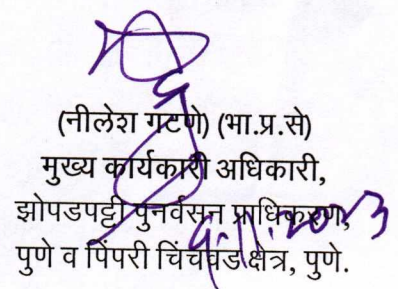 (नीलेश गटणे) (भा.प्र.से)
मुख्य कार्यकारी अधिकारी,
झोपडपट्टी पुनर्वसन प्राधिकरण,
पुणे व पिंपरी चिंचवड क्षेत्र, पुणे.